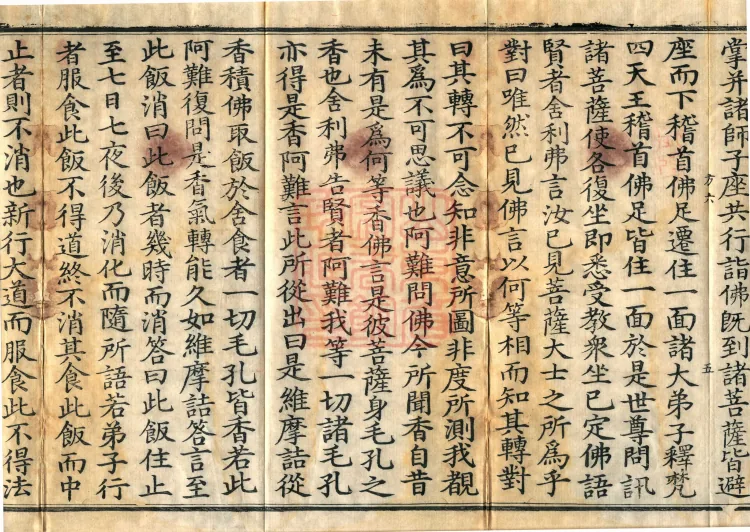 掌并諸師子座共行詣佛旣到諸菩薩皆避
座而下稽首佛足遷住一面諸大弟子釋梵
四天王稽首佛足皆住一面於是世尊問訊
諸菩薩使各復坐即悉受教衆坐已定佛語
賢者舍利弗言汝已見菩薩大士之所爲乎
對曰唯然已見佛言以何等相而知其轉對
曰其轉不可念知非意所圖非度所測我覩
其爲不可思議也阿難問佛今所聞香自昔
未有是爲何等香佛言是彼菩薩身毛孔之
香也舍利弗告賢者阿難我等一切諸毛孔
亦得是香阿難言此所從出曰是維摩詰從
香積佛取飯於舍食者一切毛孔皆香若此
阿難復問是香氣轉能久如維摩詰答言至
此飯消曰此飯者幾時而消答曰此飯住止
至七日七夜後乃消化而隨所語若弟子行
者服食此飯不得道終不消其食此飯而中
止者則不消也新行大道而服食此不得法
方六
五